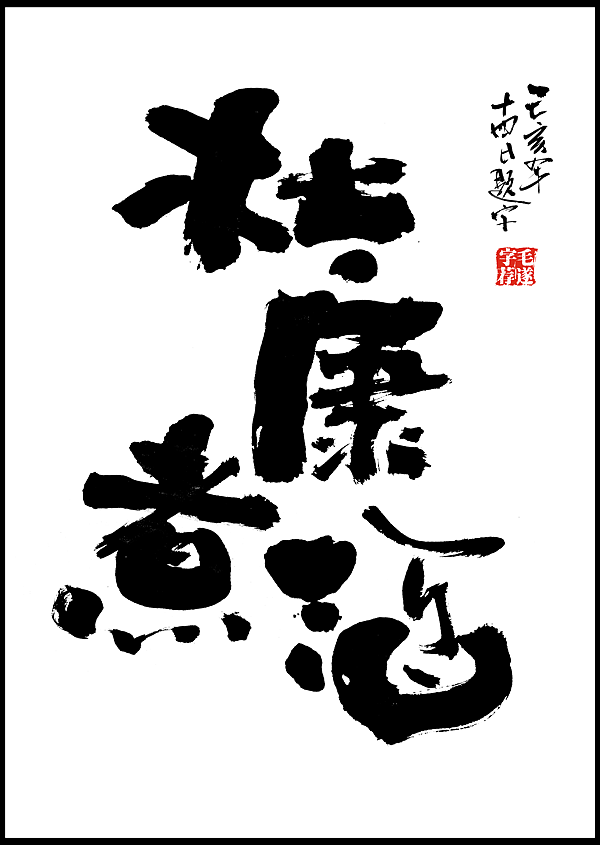 杜康煮酒
己亥年
十四日题字
毛遂字存